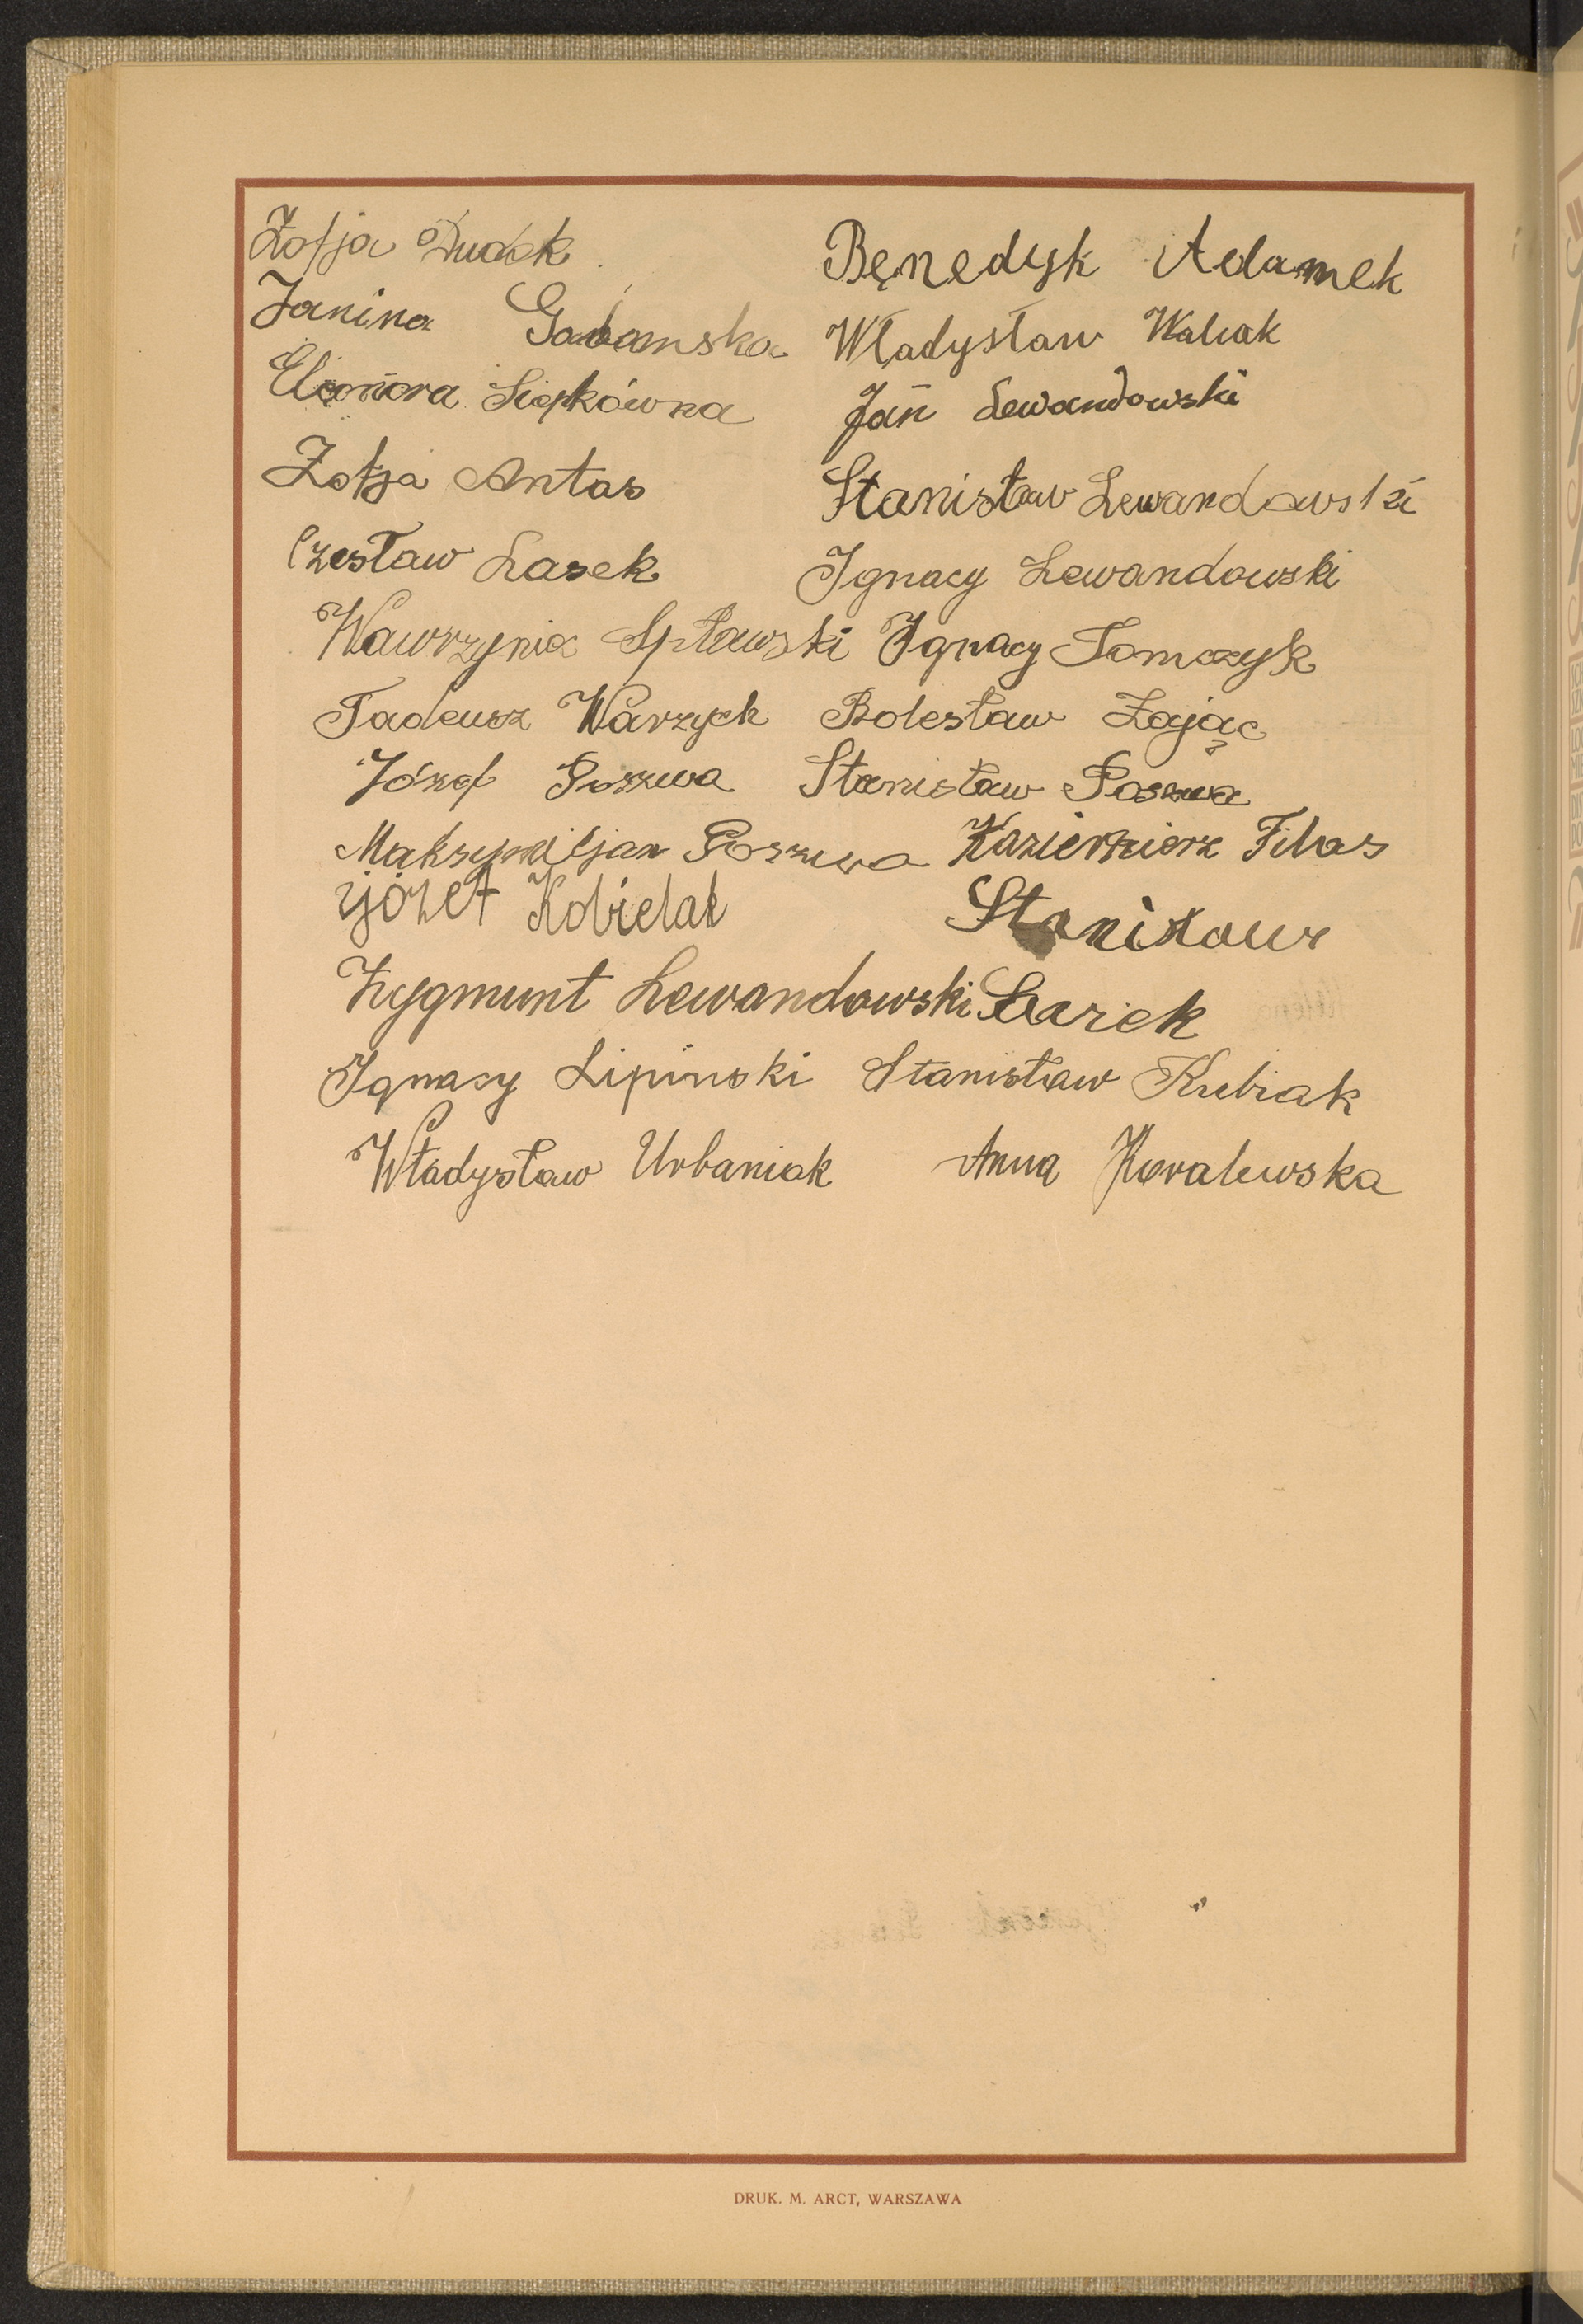 Zofja Dudek
Benedyk Adamek
Janina Gabamska
Władysław Waliak
Eleonora Siepkówna
Jan Lewandowski
Zofja Antas
Stanisław Lewandowski
Czesław Lasek
Ignacy Lewandowski
Wawrzynia Spławski
Ignacy Tomczyk
Tadeusz Warzych
Bolesław Zając
Józef Poszwa
Stanisław Poszwa
Maksymiljan Poszwa
Kaziermierz Filas
Józef Kobielak
Stanisław
Zygmunt Lewandowski
Łazek
Ignacy Lipinski
Stanisław Kubiak
Władysław Urbaniak
Anna Kowalewska
DRUK. M. ARCT, WARSZAWA